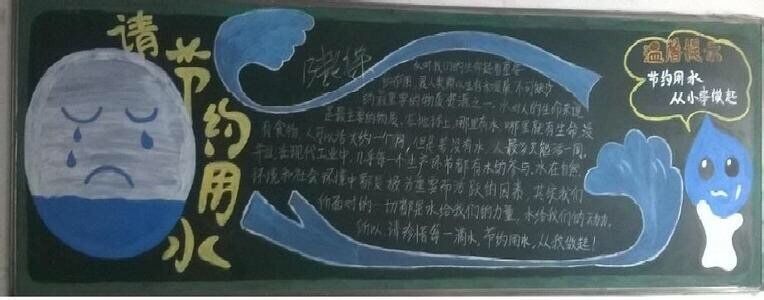 请
节约用水
水对我们的生命起着重要
的作用,是人类赖以生存和发展不可缺少
的最重要的物质资源之一,水对人的生命来说
是最主要的物质。在地球上,哪里有水,哪里就有生命。没
有食物,人可以活大约一个月,但是若没有水,人最多只能活一周。
在现代工业中,几乎每一个生产环节都有水的参与,水在自然
环境和社会环境中都是极为重要而活跃的因素,其实我们
所面对的一切都是水给我们的力量,水给我们的动力。
所以请珍惜每一滴水,节约用水,从我做起!
温馨提示
节约用水
从小事做起